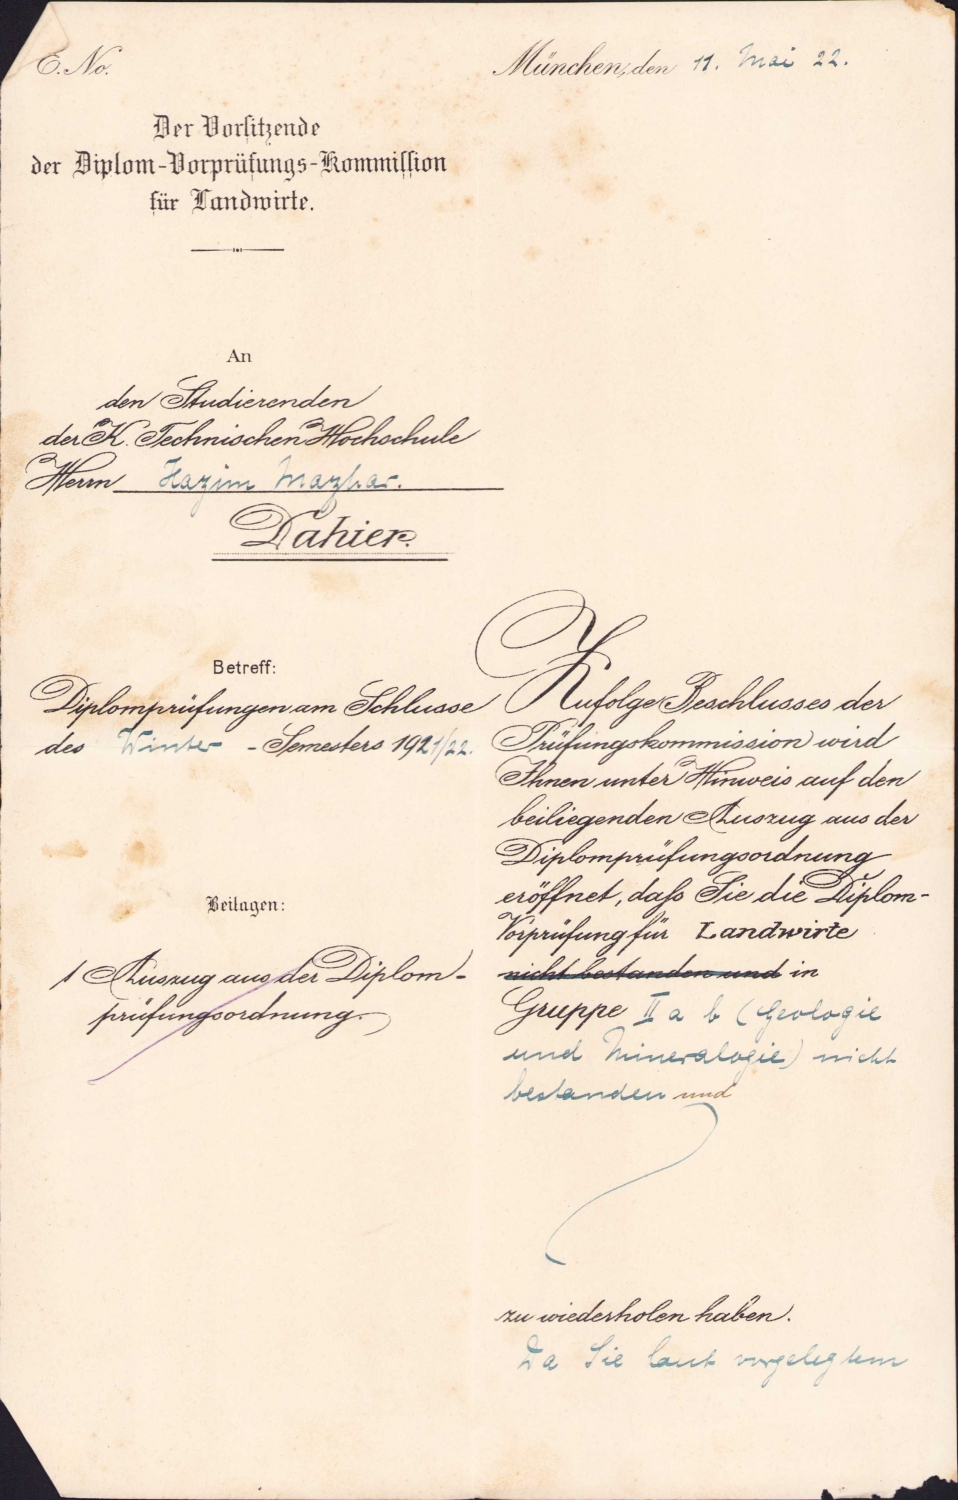 E. No.
München, den 11. Mai 22.
Der Vorsitzende
der Diplom-Vorprüfungs-Kommission
für Landwirte.
An
den Studierenden
der K. Technischen Hochschule
Herrn Hazim Mazhar.
Dahier.
Betreff:
Diplomprüfungen am Schlusse
des Winter - Semesters 1921/22.
Beilagen:
1 Auszug aus der Diplom-
prüfungsordnung.
Zufolge Beschlusses der
Prüfungskommission wird
Ihnen unter Hinweis auf den
beiliegenden Auszug aus der
Diplomprüfungsordnung
eröffnet, daß Sie die Diplom-
Vorprüfung für Landwirte
nicht bestanden und in
Gruppe II a b (Geologie
und Mineralogie) nicht
bestanden und
zu wiederholen haben.
Da Sie laut vorgelegtem